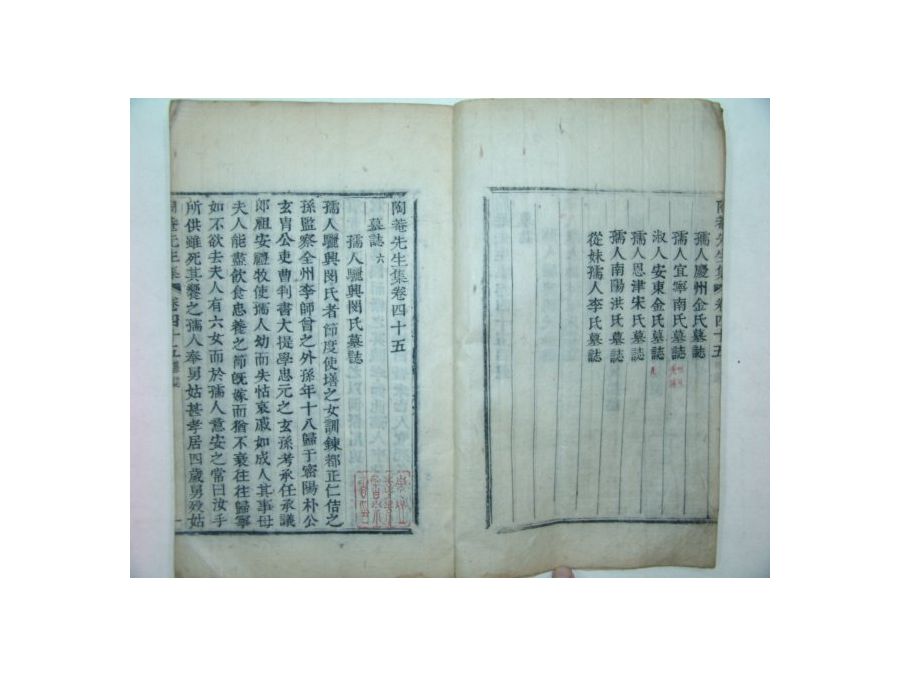 陶菴先生集 卷四十五
孺人慶州金氏墓誌
孺人宜寧南氏墓誌
淑人安東金氏墓誌
孺人恩津宋氏墓誌
孺人南陽洪氏墓誌
從妹孺人李氏墓誌
陶菴先生集卷四十五
墓誌 六
孺人驪興閔氏墓誌
孺人驪興閔氏者節度使墡之女訓鍊都正仁佶之
孫監察全州李師曾之外孫年十八歸于密陽朴公
玄胄公吏曹判書大提學忠元之玄孫考承任承議
郎祖安禮牧使孺人幼而失怙哀戚如成人其事母
夫人能盡飲食忠養之節旣嫁而猶不衰往往歸寧
如不欲去夫人有六女而於孺人意安之常曰汝乎
所供雖死其饗之孺人奉舅姑甚孝居四歲舅歿姑
陶菴先生集 卷四十五 墓誌 一